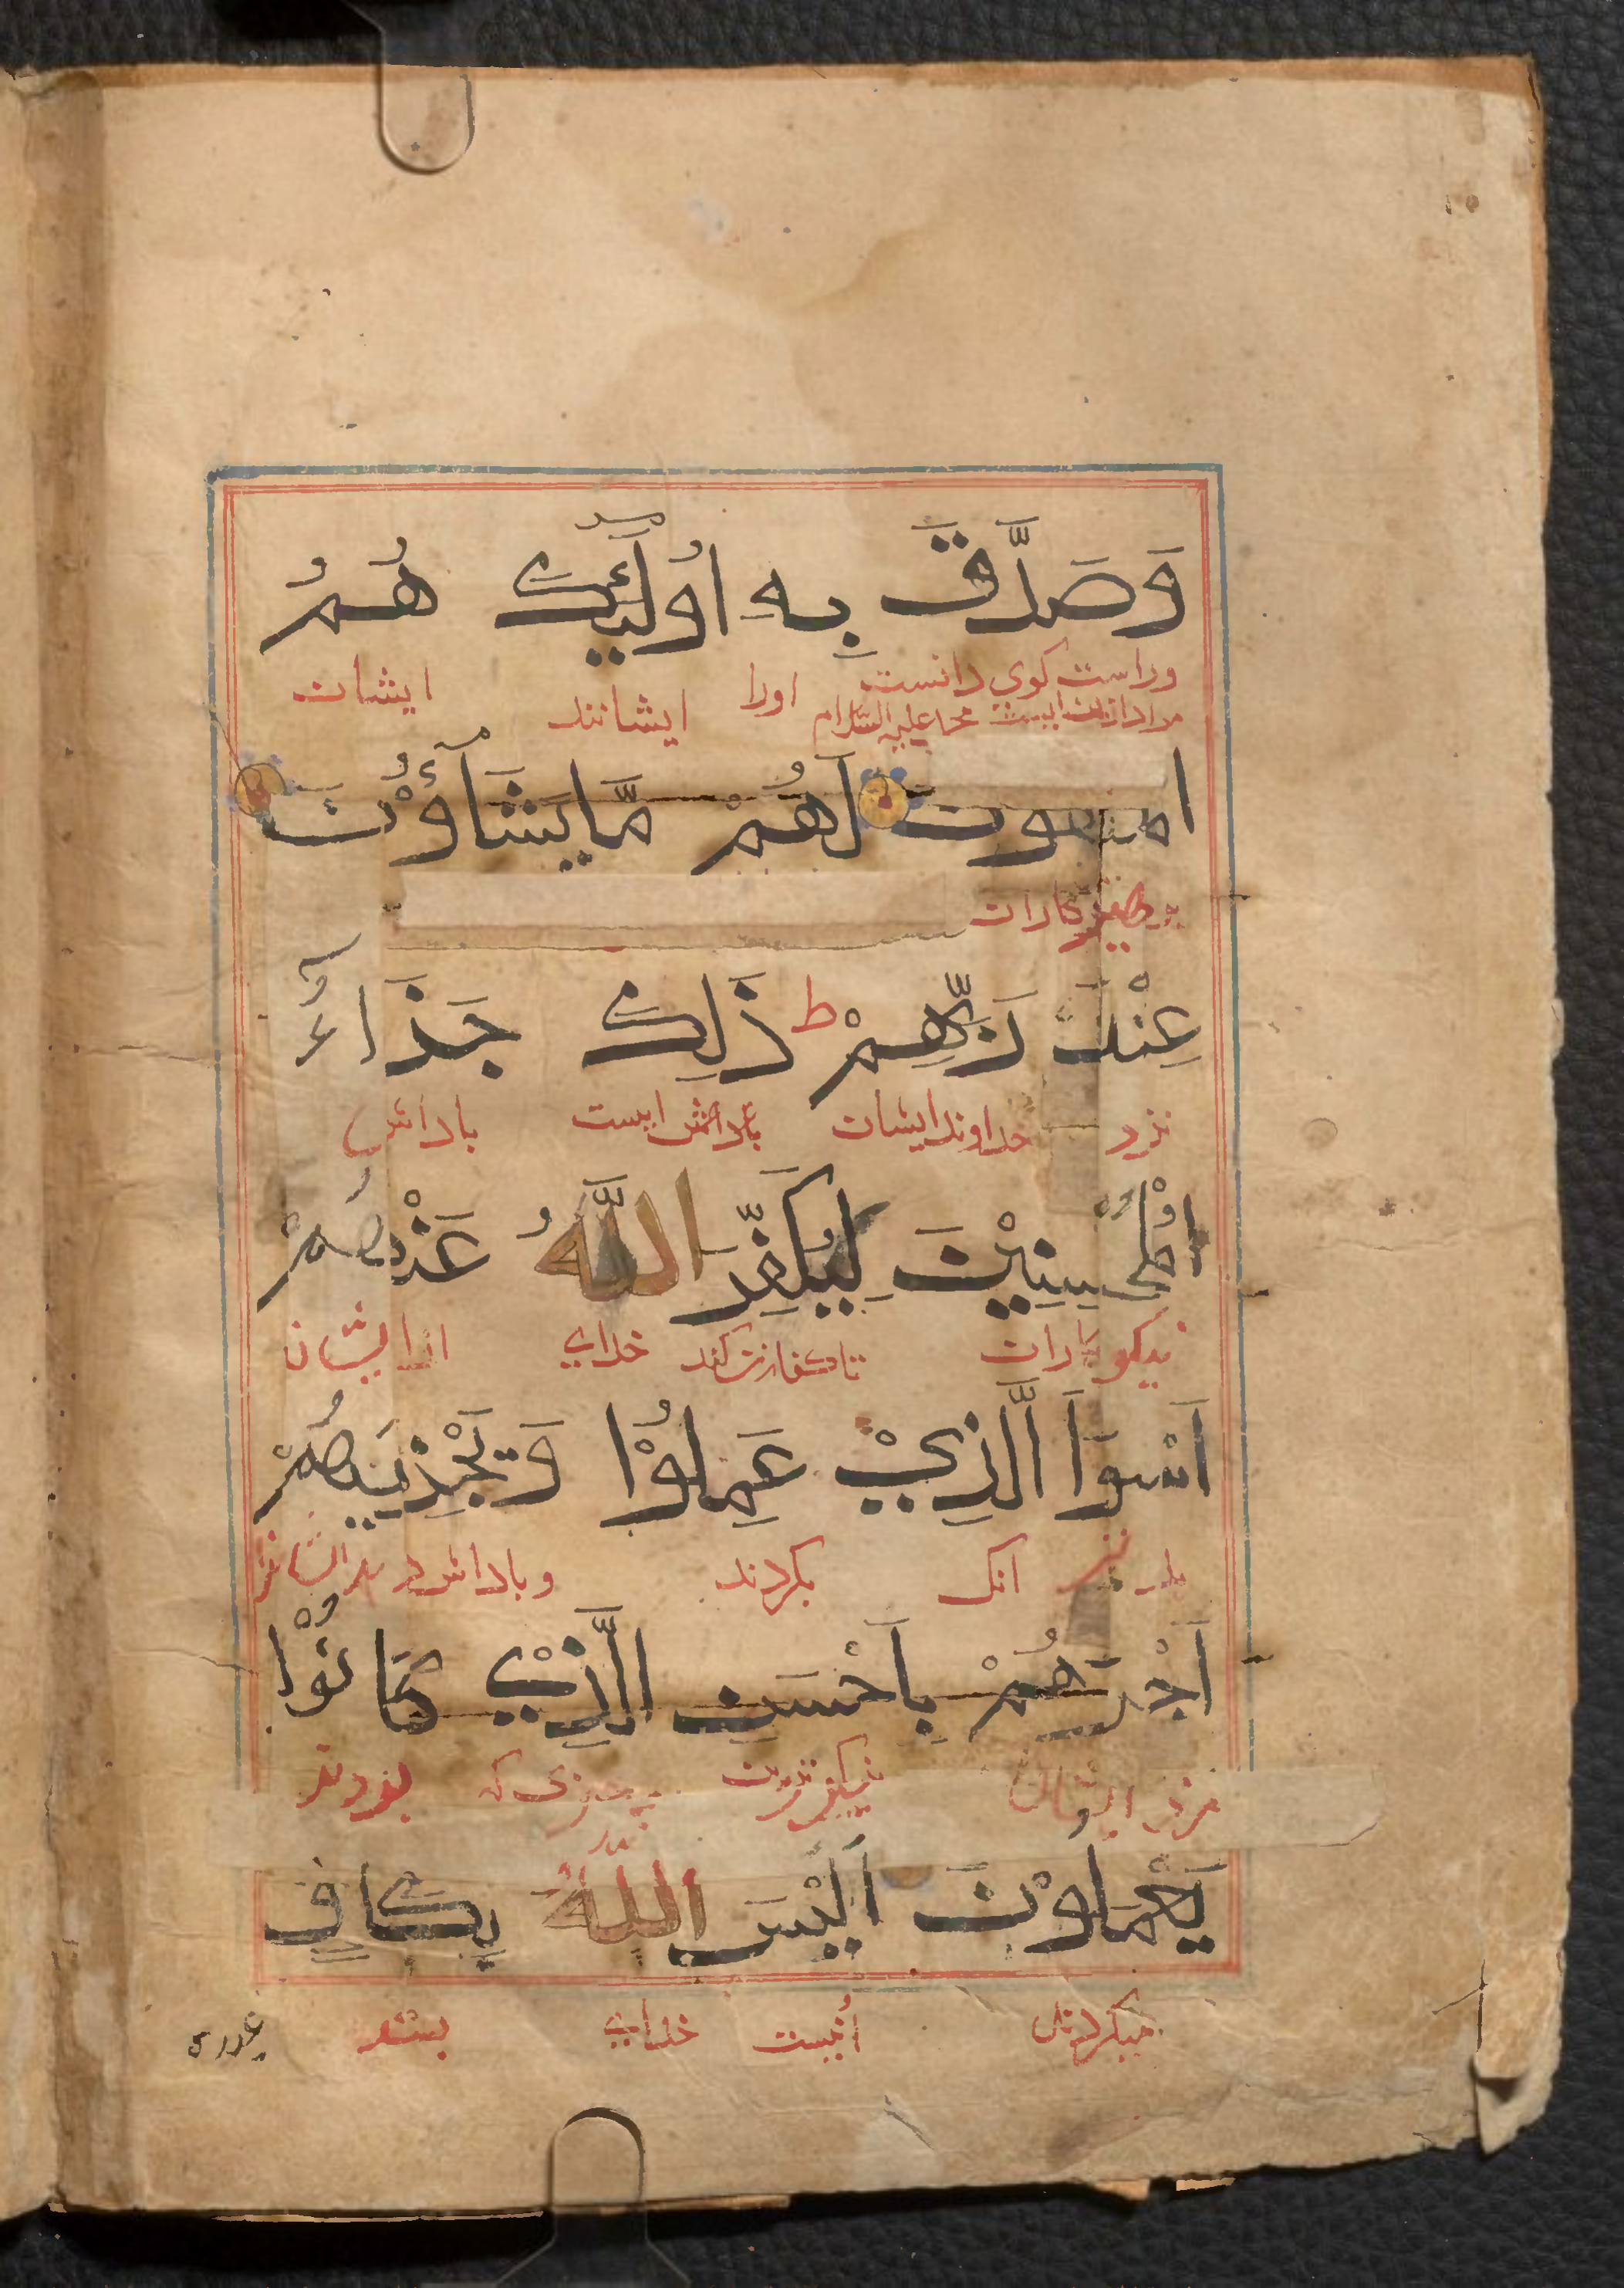 وَصَدَّقَ بِهِ أُولَٰئِكَ هُمُ
وراست کوی دانست اورا ایشانند ایشان
مراد ازین اینست محمد علیه السلام
المتقون لَهُمْ مَّا يَشَآؤُنَ
پرهیزکاران
عِنْدَ رَبِّهِمْ ط ذَٰلِكَ جَزَآءُ
نزد خداوند ایشان پاداش اینست پاداش
الْمُحْسِنِيْنَ لِيُكَفِّرَ اللَّهُ عَنْهُمْ
نیکو کاران تا کفارت کند خدای از ایشان
اَسْوَاَ الَّذِيْ عَمِلُوْا وَ يَجْزِيَهُمْ
بدتر انک بکردند و پاداش دهد
اَجْرَهُمْ بِاَحْسَنِ الَّذِيْ كَانُوْا
مزد ایشان نیکوترین چیزی که بودند
يَعْمَلُوْنَ اَلَيْسَ اللَّهُ بِكَافٍ
میکردند أنیست خدای بسنده